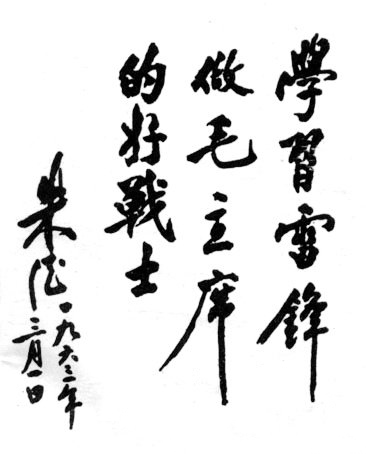 學習雷鋒
做毛主席
的好戰士
朱德
一九六三年
三月一日